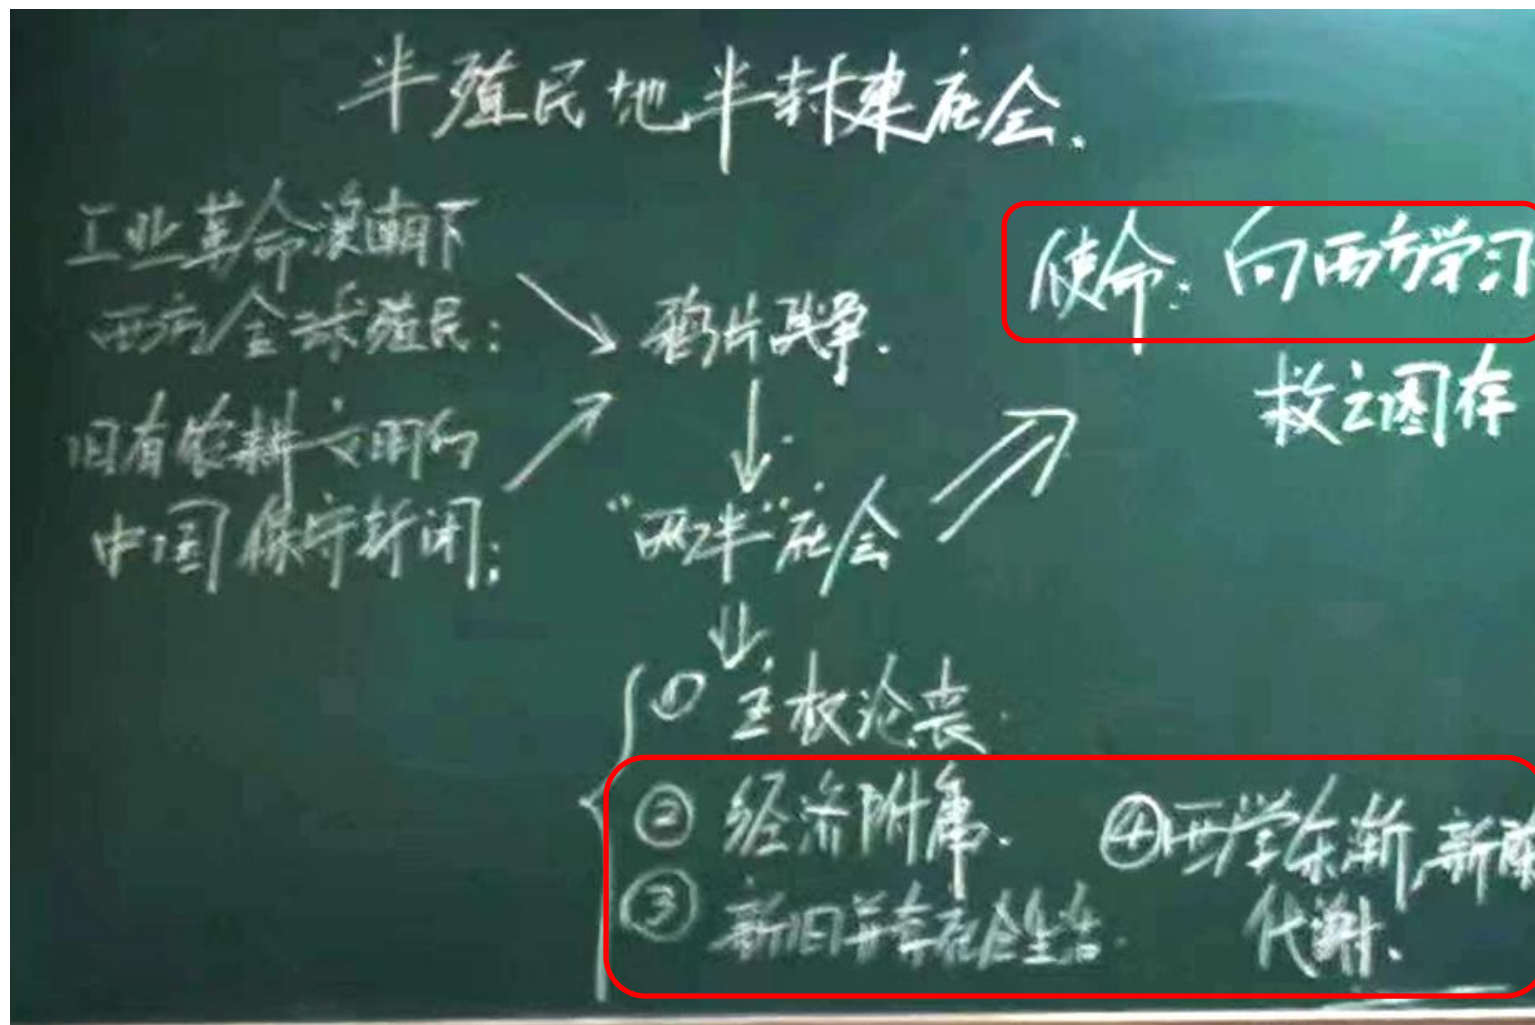 半殖民地半封建社会.
工业革命浪潮下
西方全球殖民:
旧有农耕文明的
中国保守新闭:
鸦片战争.
"两半"社会
使命: 向西方学习
救亡图存
① 主权沦丧.
② 经济附庸.
③ 新旧并存社会生活.
④西学东渐,新陈
代谢.